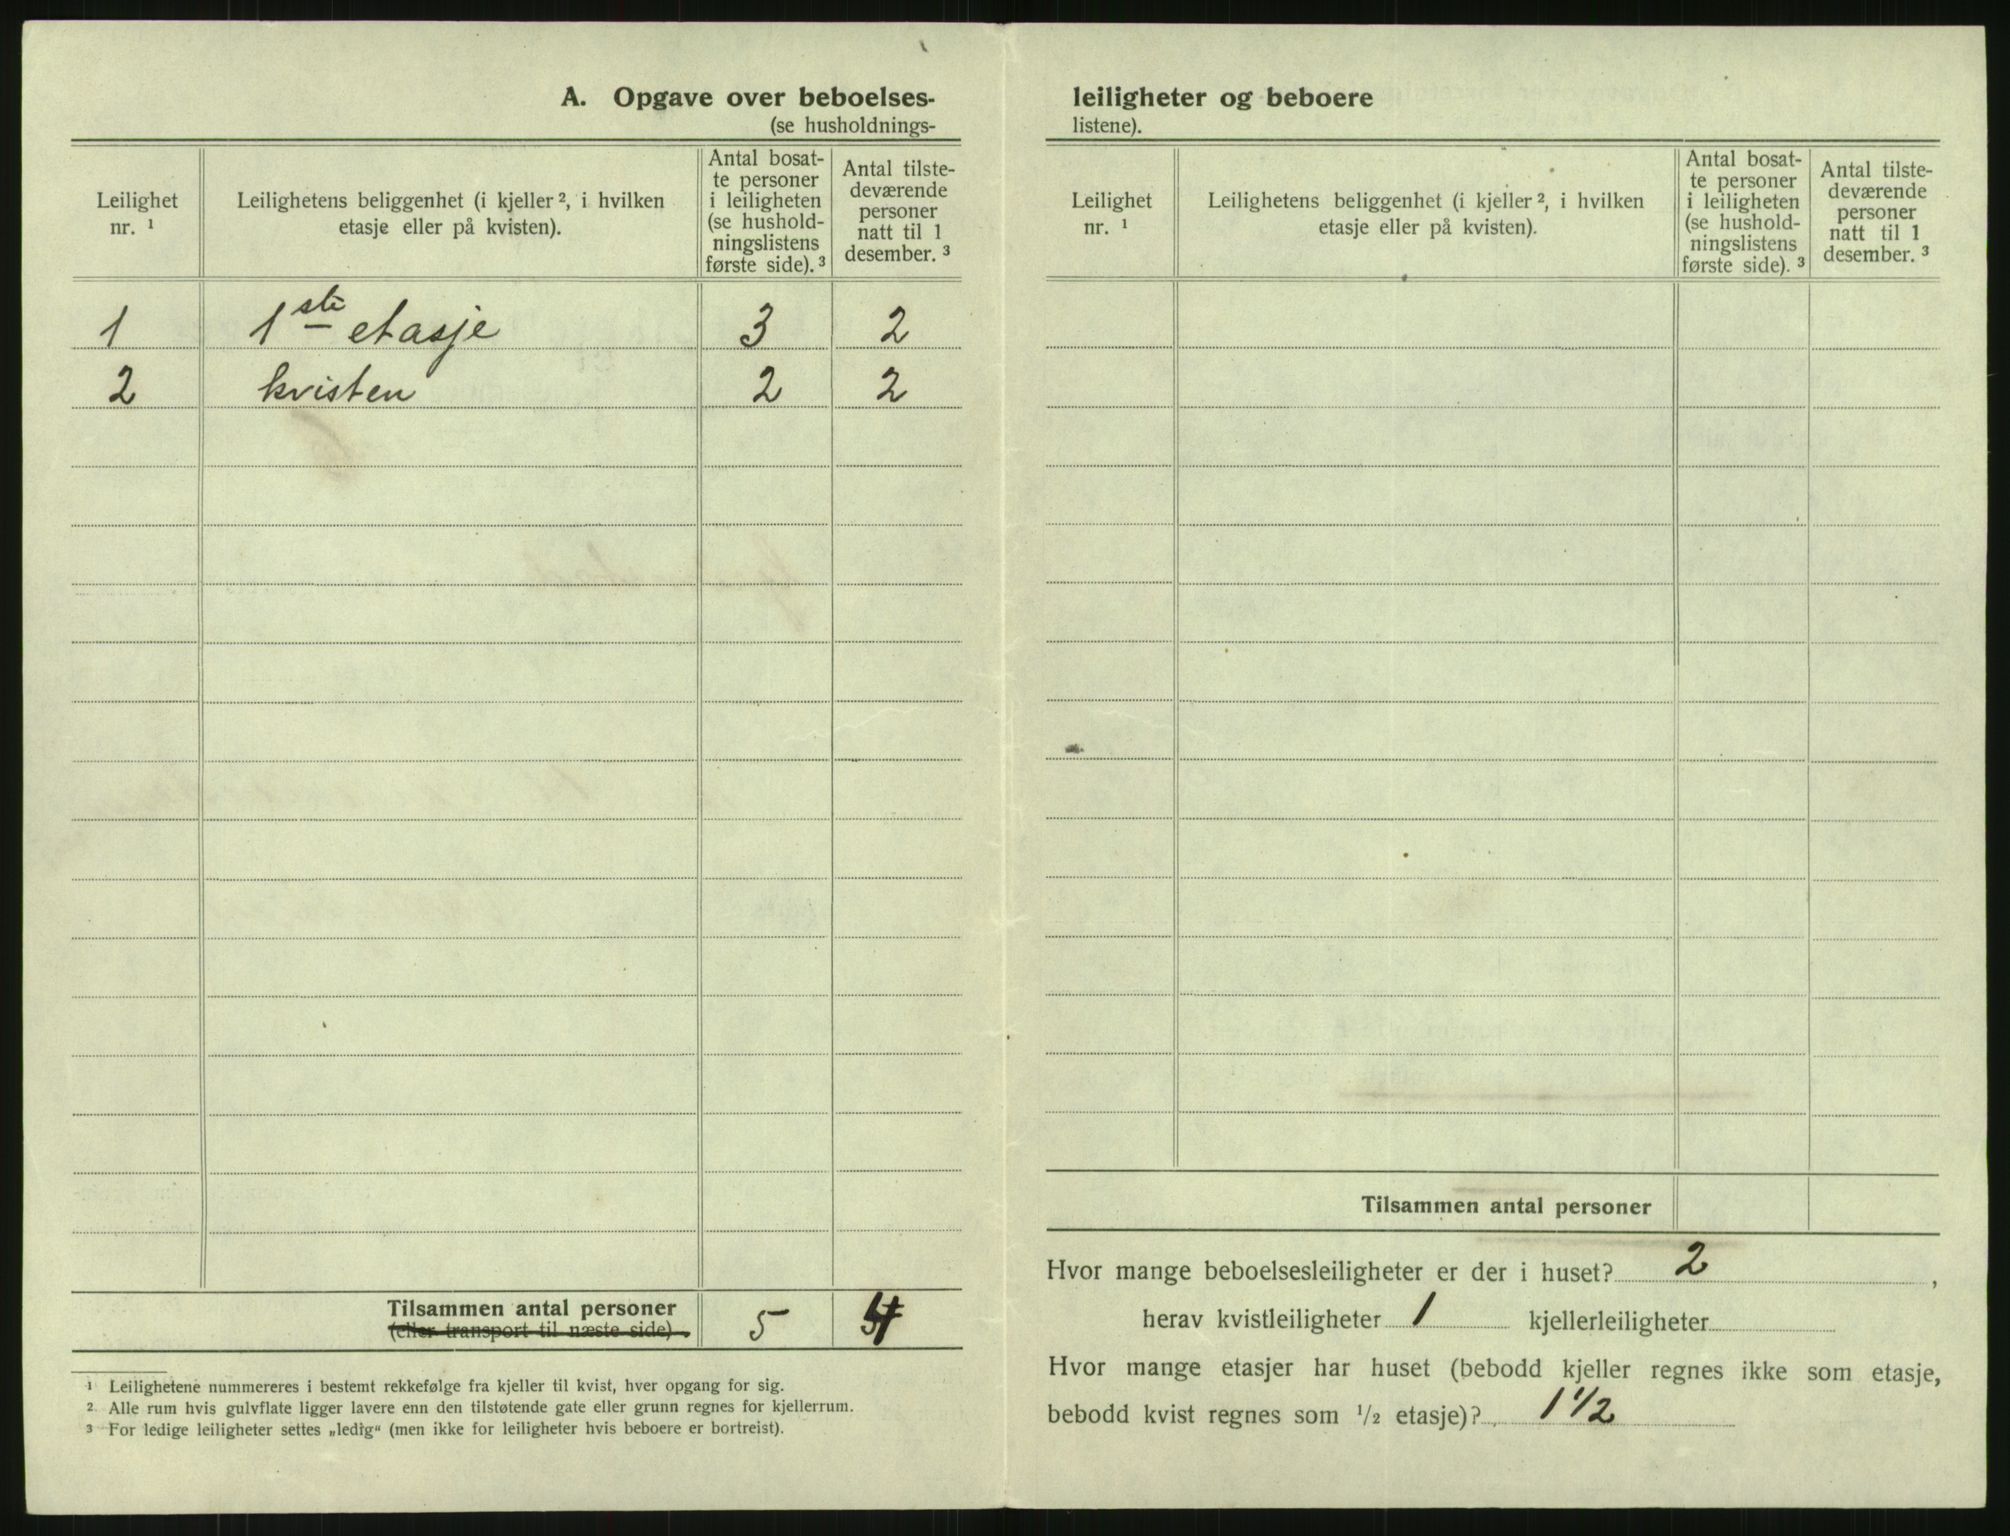 A. Opgave over beboelses-
(se husholdnings-
Leilighet
nr. ¹
Leilighetens beliggenhet (i kjeller ², i hvilken
etasje eller på kvisten).
Antal bosat-
te personer
i leiligheten
(se hushold-
ningslistens
første side). ³
Antal tilste-
deværende
personer
natt til 1
desember. ³
1 1ste etasje 3 2
2 kvisten 2 2
Tilsammen antal personer 5 4
(eller transport til næste side)
¹ Leilighetene nummereres i bestemt rekkefølge fra kjeller til kvist, hver opgang for sig.
² Alle rum hvis gulvflate ligger lavere enn den tilstøtende gate eller grunn regnes for kjellerrum.
³ For ledige leiligheter settes „ledig“ (men ikke for leiligheter hvis beboere er bortreist).
leiligheter og beboere
listene).
Leilighet
nr. ¹
Leilighetens beliggenhet (i kjeller ², i hvilken
etasje eller på kvisten).
Antal bosat-
te personer
i leiligheten
(se hushold-
ningslistens
første side). ³
Antal tilste-
deværende
personer
natt til 1
desember. ³
Tilsammen antal personer
Hvor mange beboelsesleiligheter er der i huset? 2 ,
herav kvistleiligheter 1 kjellerleiligheter
Hvor mange etasjer har huset (bebodd kjeller regnes ikke som etasje,
bebodd kvist regnes som ¹/₂ etasje)? 1 1/2